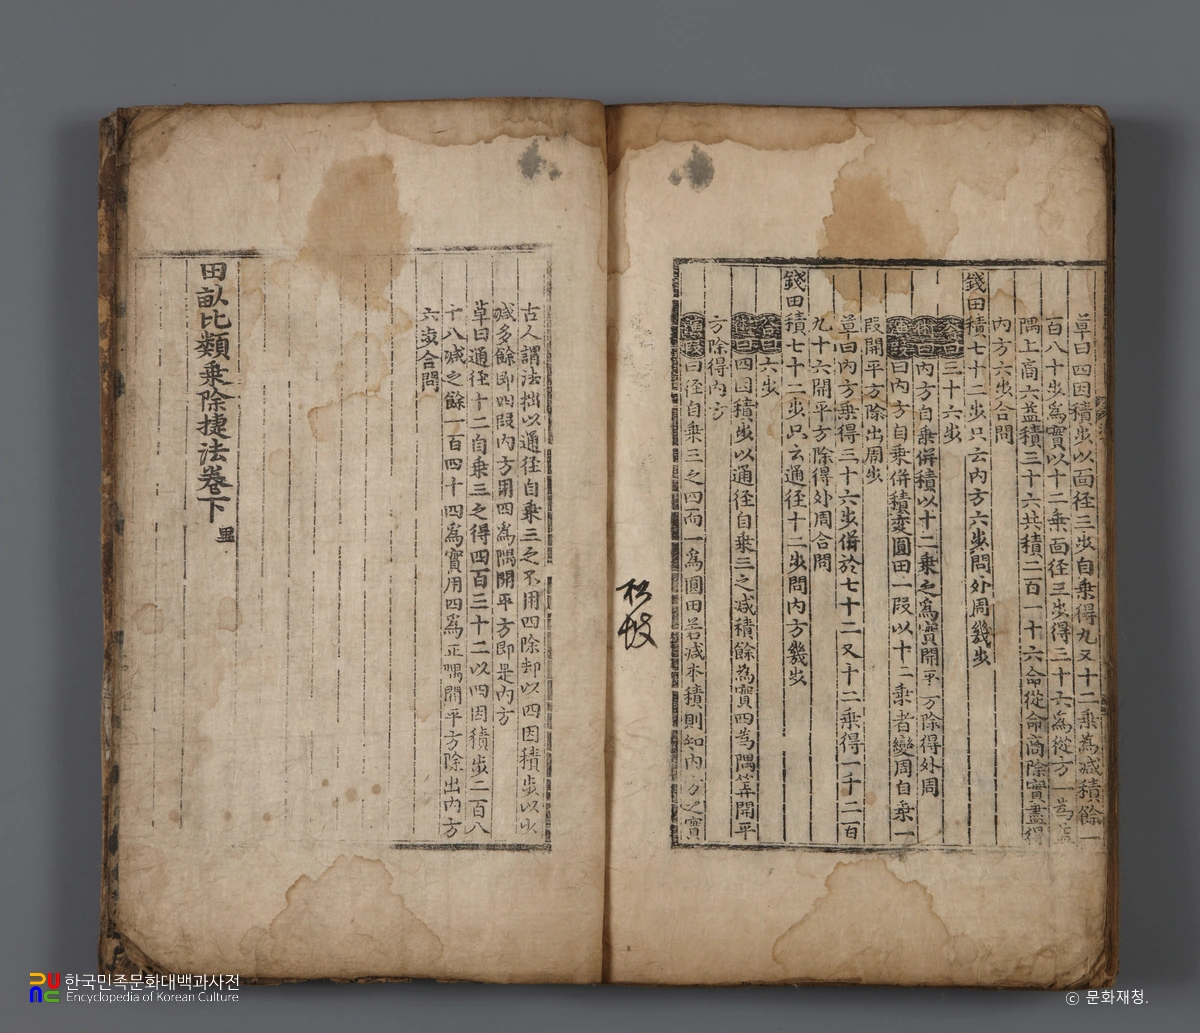 草曰四因積步以面径三步自乗得九又十二乗為减積餘一
百八十步為實以十二乗面径三步得三十六為從方一為益
隅上商六益積三十六共積二百一十六命從命商除實盡得
内方六步合問
錢田積七十二步只云内方六步問外周幾步
荅曰三十六步
術曰内方自乗併積以十二乗之為實開平方除得外周
曰内方自乗併積変圓田一段以十二乗者變周自乗一
段開平方除出周步
草曰内方乗得三十六步併於七十二又十二乗得一千二百
九十六開平方除得外周合問
錢田積七十二步只云通径十二步問内方幾步
荅曰六步
術曰四因積步以通径自乗三之减積餘為實四為隅筭開平
方除得内方
曰径自乗三之四而一為圓田若减本積則知内方之實
松坡
古人謂法拙以通径自乗三之不用四除却以四因積步以少
减多餘即四段内方用四為隅開平方即是内方
草曰通径十二自乗三之得四百三十二以四因積步二百八
十八减之餘一百四十四為實用四為正隅開平方除出内方
六步合問
田畝比類乗除捷法卷下
한국민족문화대백과사전
Encyclopedia of Korean Culture
© 문화재청.